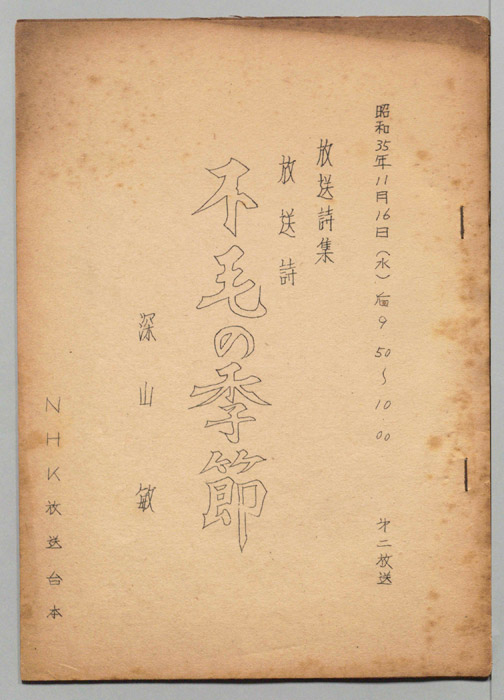 昭和35年11月16日（水）后9 50〜10 00
第二放送
放送詩集
放送詩
不毛の季節
深山敏
NHK放送台本